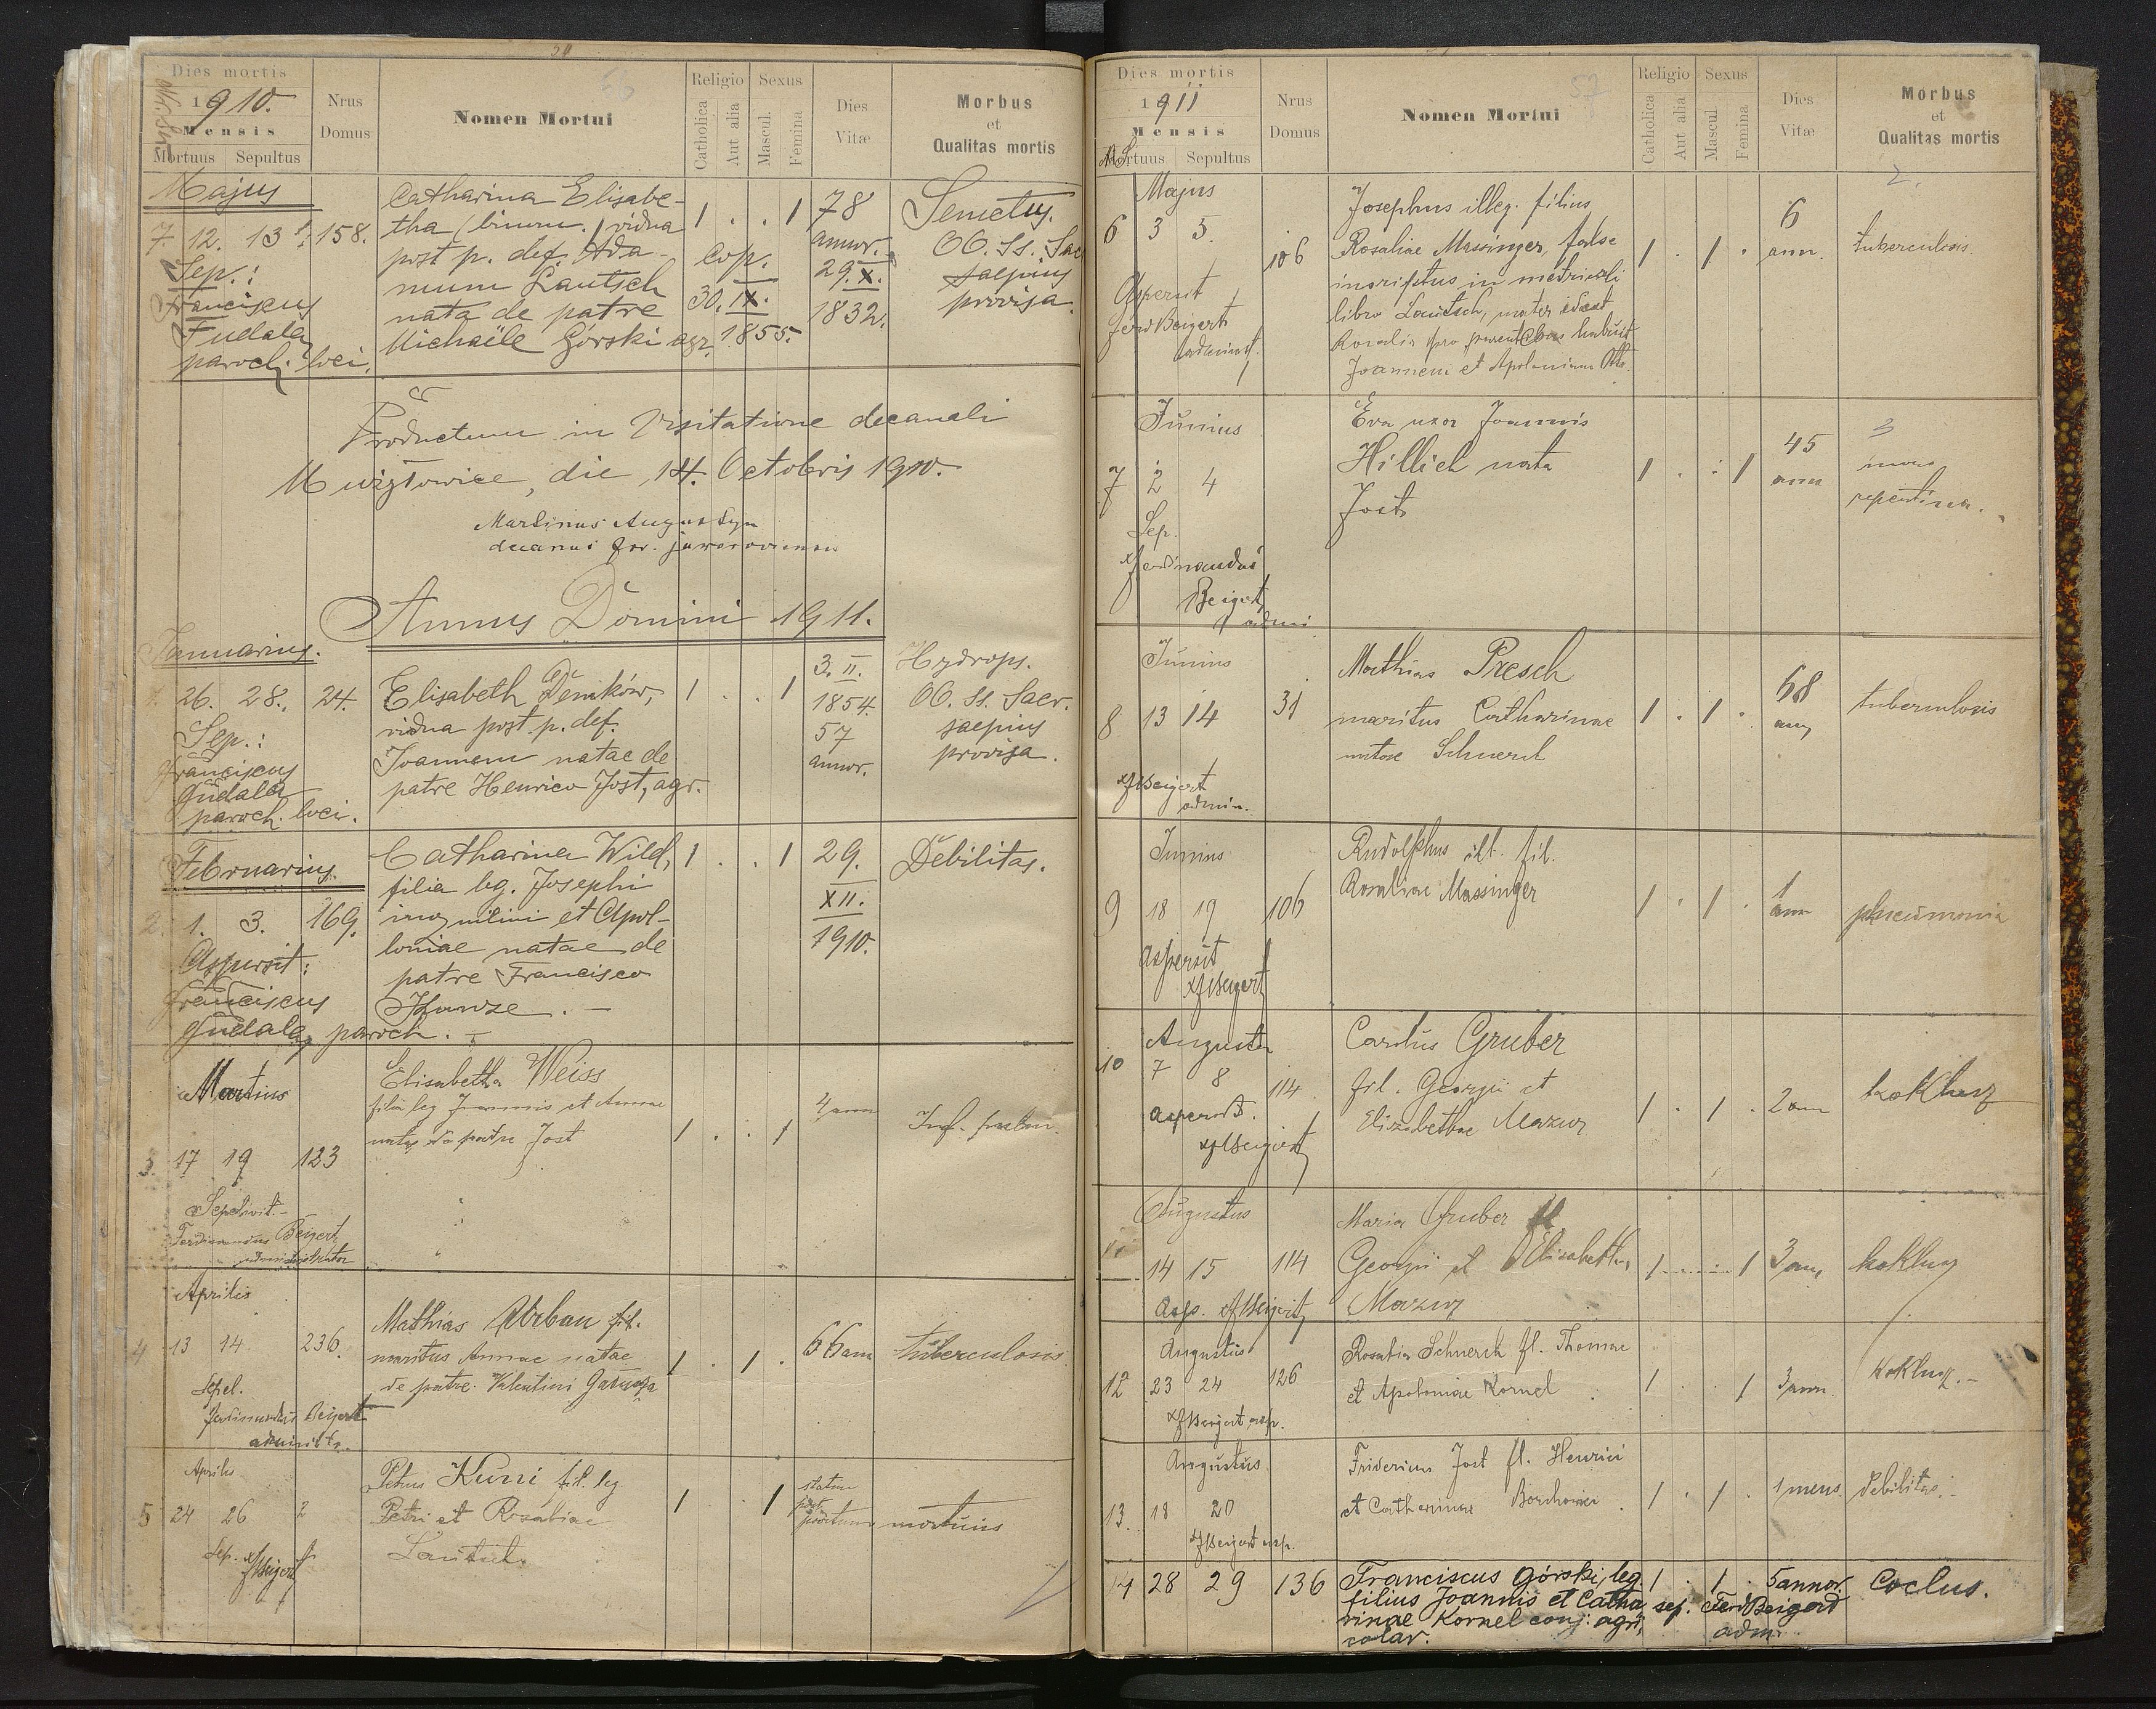 Dies mortis
1910.
Mensis
Mortuus Sepultus
Nrus
Domus
Nomen Mortui
Religio
Catholica
Aut alia
Sexus
Mascul.
Femina
Dies
Vitæ
Morbus
et
Qualitas mortis
Majus
7. 12. 13 158.
Sep.:
Franciscus
Fudala
paroch. loci.
Catharina Elisabe-
tha (binom.) vidua
post p. def. Ada-
mum Lautsch
nata de patre
Michaële Górski agr.
1 . . 1
cop.
30. IX.
1855.
78
annor.
29. X.
1832.
Senectus.
OO. Ss. Sac
saepius
provisa.
Productum in Visitatione decanali
Mużyłowice, die 14. Octobris 1910.
Martinus Augustyn
decanus for.
Annus Domini 1911.
Januarius.
1. 26. 28. 24.
Sep.:
Franciscus
Fudala
paroch. loci.
Elisabeth Deńków,
vidua post p. def.
Joannem natae de
patre Henrico Jost, agr.
1 . . 1
3. II.
1854.
57
annor.
Hydrops.
OO. Ss. Sacr.
saepius
provisa.
Februarius.
2. 1. 3. 169.
Aspersit:
Franciscus
Fudala, paroch.
Catharina Wild,
filia leg. Josephi
inquilini et Apol-
loniae natae de
patre Francisco
Kunze. —
1 . . 1
29.
XII.
1910.
Debilitas.
Martius
3. 17 19 123
Sepelivit.-
Ferdinandus Beigert
administrator
Elisabetha Weiss
filia leg Joannis et Annae
natae de patre Jost
1 . . 1
4 ann
Inf. pulm.
Aprilis
4 13 14 236.
Sepel.
Ferdinandus Beigert
administr.
Mathias Urban fil.
maritus Annae natae
de patre Valentini
1 . 1 .
66 ann
tuberculosis
Aprilis
5 24 26 2
Sep. Beigert
Petrus Kuni fil. leg
Petri et Rosaliae
Lautsch
1 . 1
statim
post
partum
mortuus
Dies mortis
1911
Mensis
Mortuus Sepultus
Nrus
Domus
Nomen Mortui
Religio
Catholica
Aut alia
Sexus
Mascul.
Femina
Dies
Vitæ
Morbus
et
Qualitas mortis
Majus
6 3 5. 106
Aspersit
Ferd Beigert
administ.
Josephus illeg. filius
Rosaliae Massinger, false
inscriptus in metricali
libro Lautsch, mater
Rosalia pro parentibus habuit
Joannem et Apoloniam
1 . 1 .
6
ann.
tuberculosis
Junius
7 2 4
Sep.
Ferdinandus
Beigert
admi
Eva uxor Joannis
Hillich nata
Jost
1 . . 1
45
ann
mors
repentina.
Junius
8 13 14 31
Beigert
admin.
Mathias Presch
maritus Catharinae
natae Schnerch
1 . 1 .
68
ann
tuberculosis
Junius
9 18 19 106
Aspersit
Beigert
Rudolphus ill. fil.
Rosaliae Massinger
1 . 1 .
1
ann
pneumonia
Augustus
10 7 8 114
aspersit.
Beigert
Carolus Gruber
fil. Georgii et
Elizabethae Mazur
1 . 1 . 2 ann
koklusz
Augustus
11 14 15 114
Asp. Beigert
Maria Gruber fl
Georgii et Elisabethae
Mazur
1 . . 1 3 ann
koklusz
Augustus
12 23 24 126
Beigert asp.
Rosalia Schnerch fl. Thomae
et Apoloniae Kornel
1 . . 1 3 ann.
Koklusz.-
Augustus
13. 18 20
Beigert asp.
Fridericus Jost fl. Henrici
et Catharinae
1 . 1 . 1 mens.
debilitas.-
14 28 29 136
Franciscus Górski, leg
filius Joannis et Catha
rinae Kornel conj. agri,
colar.
1 . 1 . 5 annor.
sep. Ferd Beigerd
adm.
Coclus.